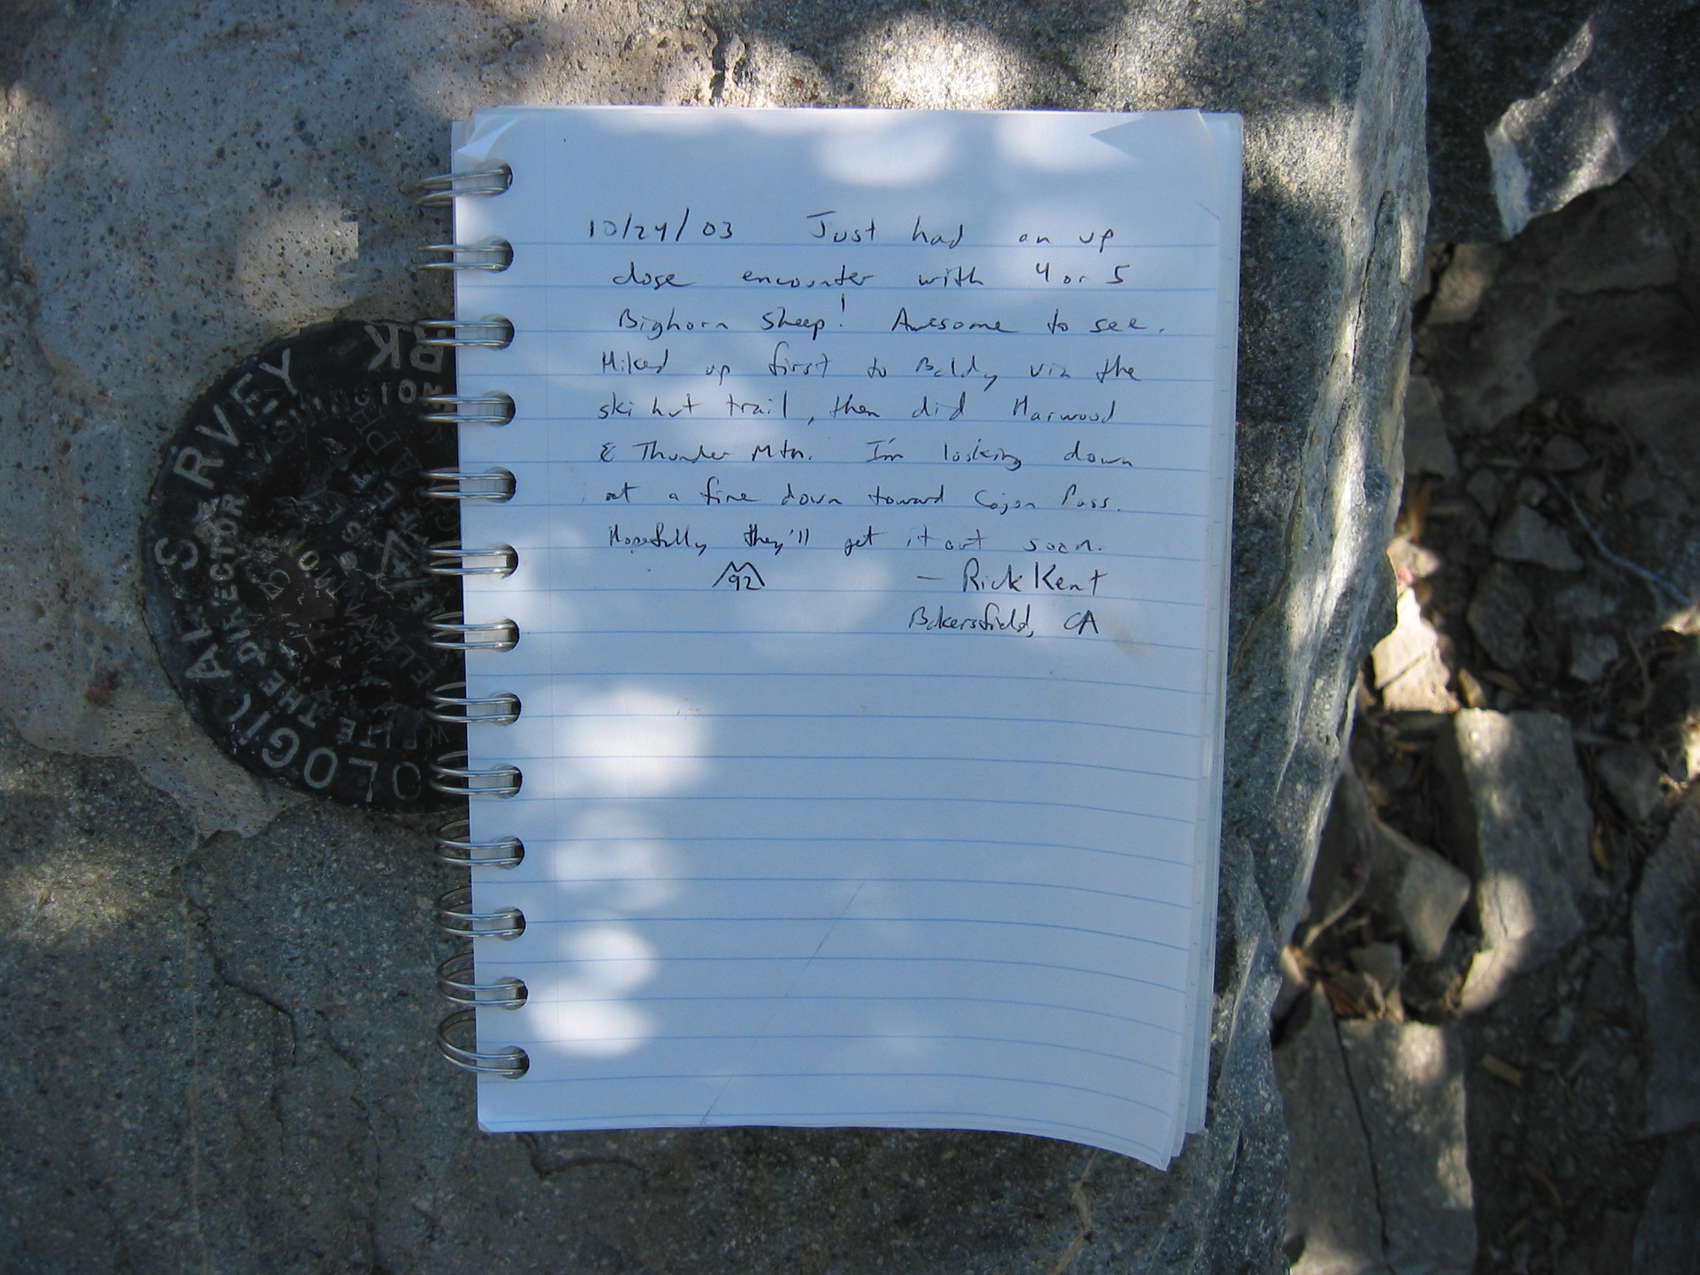 10/24/03 Just had an up
close encounter with 4 or 5
Bighorn Sheep! Awesome to see.
Hiked up first to Baldy via the
ski hut trail, then did Harwood
& Thunder Mtn. I'm looking down
at a fire down toward Cajon Pass.
Hopefully they'll get it out soon.
92
— Rick Kent
Bakersfield, CA
RVEY
BK
DIRECTOR
WRITE THE